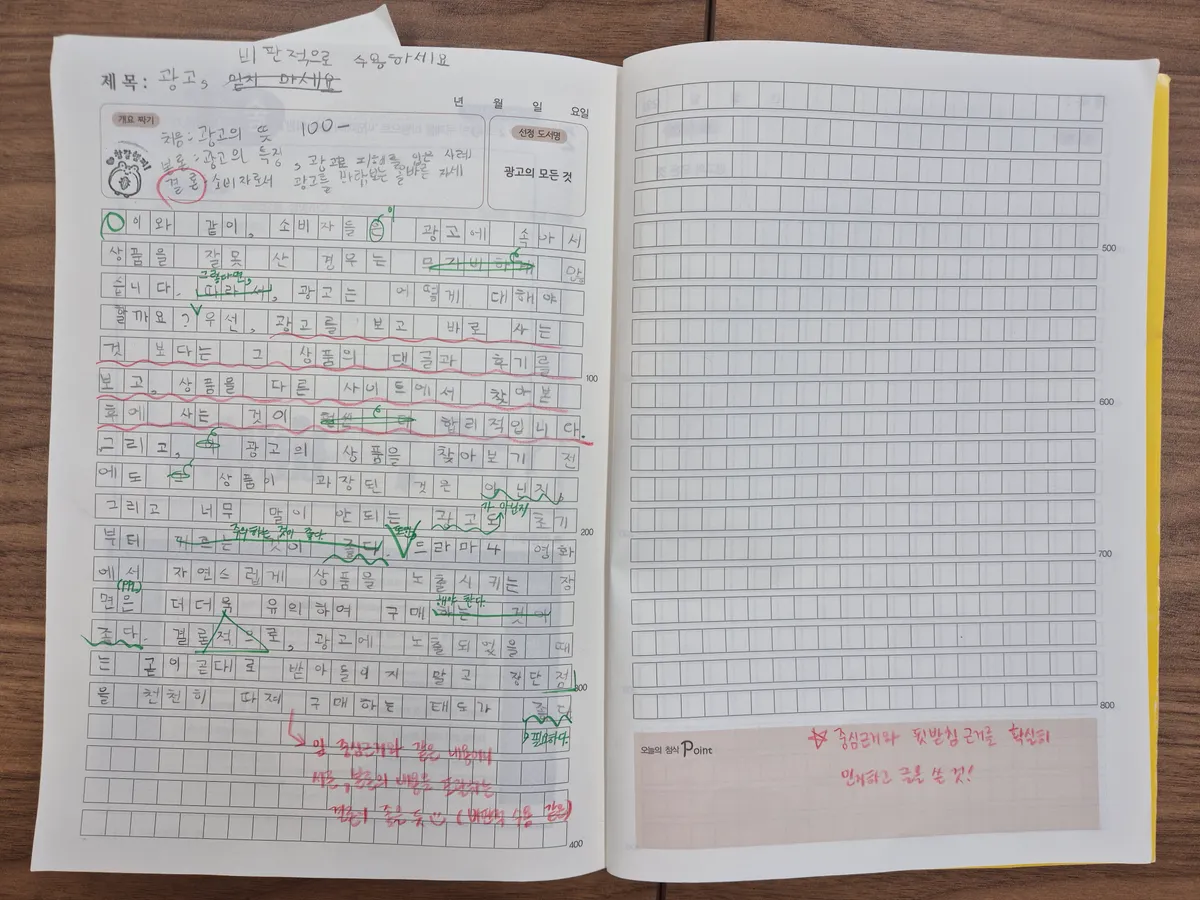 비판적으로 수용하세요
제목: 광고, 믿지 마세요
년 월 일 요일
개요 짜기
처음: 광고의 뜻 100-
본론: 광고의 특징, 광고로 피해를 입은 사례
결론: 소비자로서 광고를 바라보는 올바른 자세
선정 도서명
광고의 모든 것
이와 같이, 소비자들을 이 광고에 속아서
상품을 잘못 산 경우는 무지비하게 많
습니다. 따라서, 광고는 어떻게 대해야
그렇다면,
할까요? 우선, 광고를 보고 바로 사는
것 보다는 그 상품의 댓글과 후기를
100
보고, 상품을 다른 사이트에서 찾아본
후에 사는 것이 훨씬 더 합리적입니다.
그리고, 광고의 상품을 찾아보기 전
에도 상품이 과장된 것은 아닌지,
그리고 너무 말이 안되는 광고도 초기
가 아닌지
200
부터 것이 좋다. 드라마나 영화
주의하는 것이 좋다. 또한,
에서 자연스럽게 상품을 노출시키는 장
(PPL)
면은 더더욱 유의하여 구매하는 것이
해야 한다.
좋다. 결론적으로, 광고에 노출되었을 때
는 곧이곧대로 받아들이지 말고 장단점
300
을 천천히 따져 구매하는 태도가 좋다
필요하다.
앞 중심근거와 같은 내용이니
서론, 본론의 내용을 는
결론이 좋을 듯 (비판적 수용 같은)
400
500
600
700
800
오늘의 첨삭 Point
☆ 중심근거와 뒷받침 근거를 확실히
인지하고 글을 쓸 것!